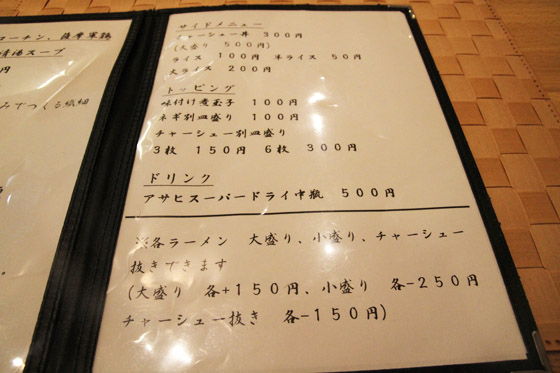 コーチン、薩摩軍鶏
清湯スープ
円
みでつくる繊細
サイドメニュー
チャーシュー丼 300円
(大盛り 500円)
ライス 100円 半ライス 50円
大ライス 200円
トッピング
味付け煮玉子 100円
ネギ別皿盛り 100円
チャーシュー別皿盛り
3枚 150円 6枚 300円
ドリンク
アサヒスーパードライ中瓶 500円
※各ラーメン 大盛り、小盛り、チャーシュー
抜きできます
(大盛り 各+150円、小盛り 各-250円
チャーシュー抜き 各-150円)